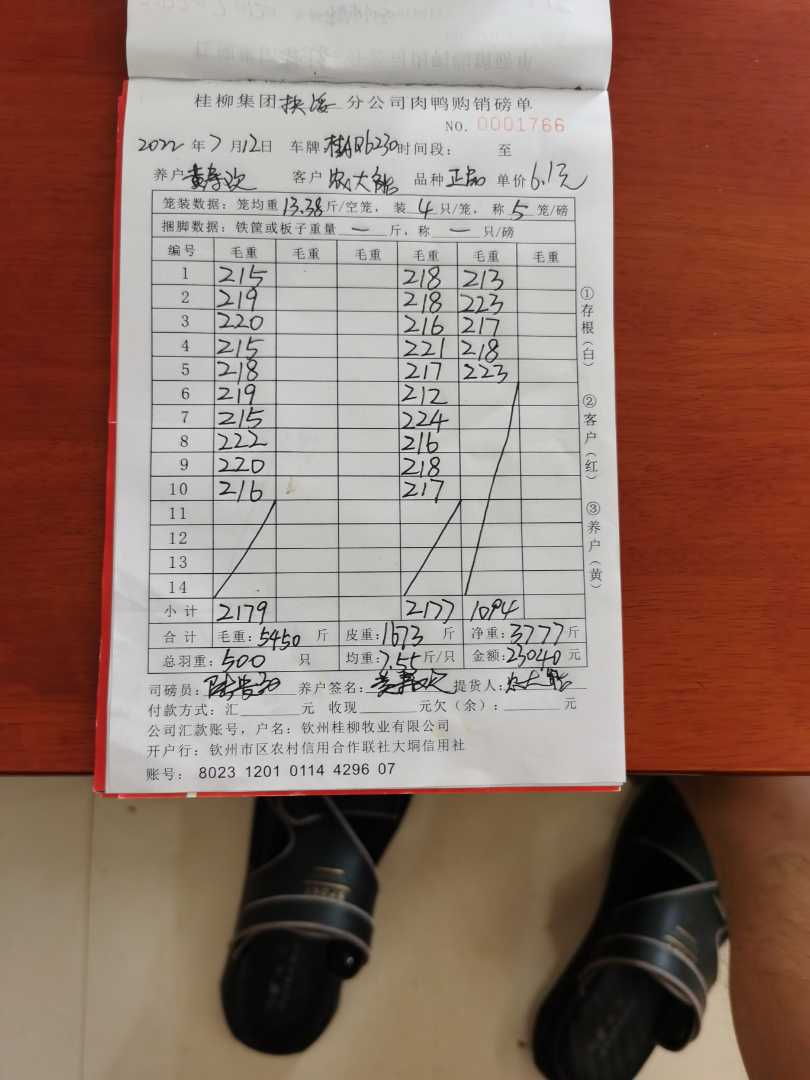 桂柳集团扶绥分公司肉鸭购销磅单
NO. 0001766
2022年7月12日 车牌 桂AR6230 时间段: 至
养户 客户 农大能 品种 正品 单价 6.1元
笼装数据: 笼均重 13.38 斤/空笼, 装 4 只/笼, 称 5 笼/磅
捆脚数据: 铁筐或板子重量 — 斤, 称 — 只/磅
编号 毛重 毛重 毛重 毛重 毛重 毛重
1 215 218 213
2 219 218 223
3 220 216 217
4 215 221 218
5 218 217 223
6 219 212
7 215 224
8 222 216
9 220 218
10 216 217
11
12
13
14
小计 2179 2177 1094
合计 毛重: 5450 斤 皮重: 1673 斤 净重: 3777 斤
总羽重: 500 只 均重: 7.55 斤/只 金额: 23040 元
司磅员: 养户签名: 提货人: 农大能
付款方式: 汇 元 收现 元欠(余): 元
公司汇款账号, 户名: 钦州桂柳牧业有限公司
开户行: 钦州市区农村信用合作联社大垌信用社
账号: 8023 1201 0114 4296 07
①存根(白) ②客户(红) ③养户(黄)